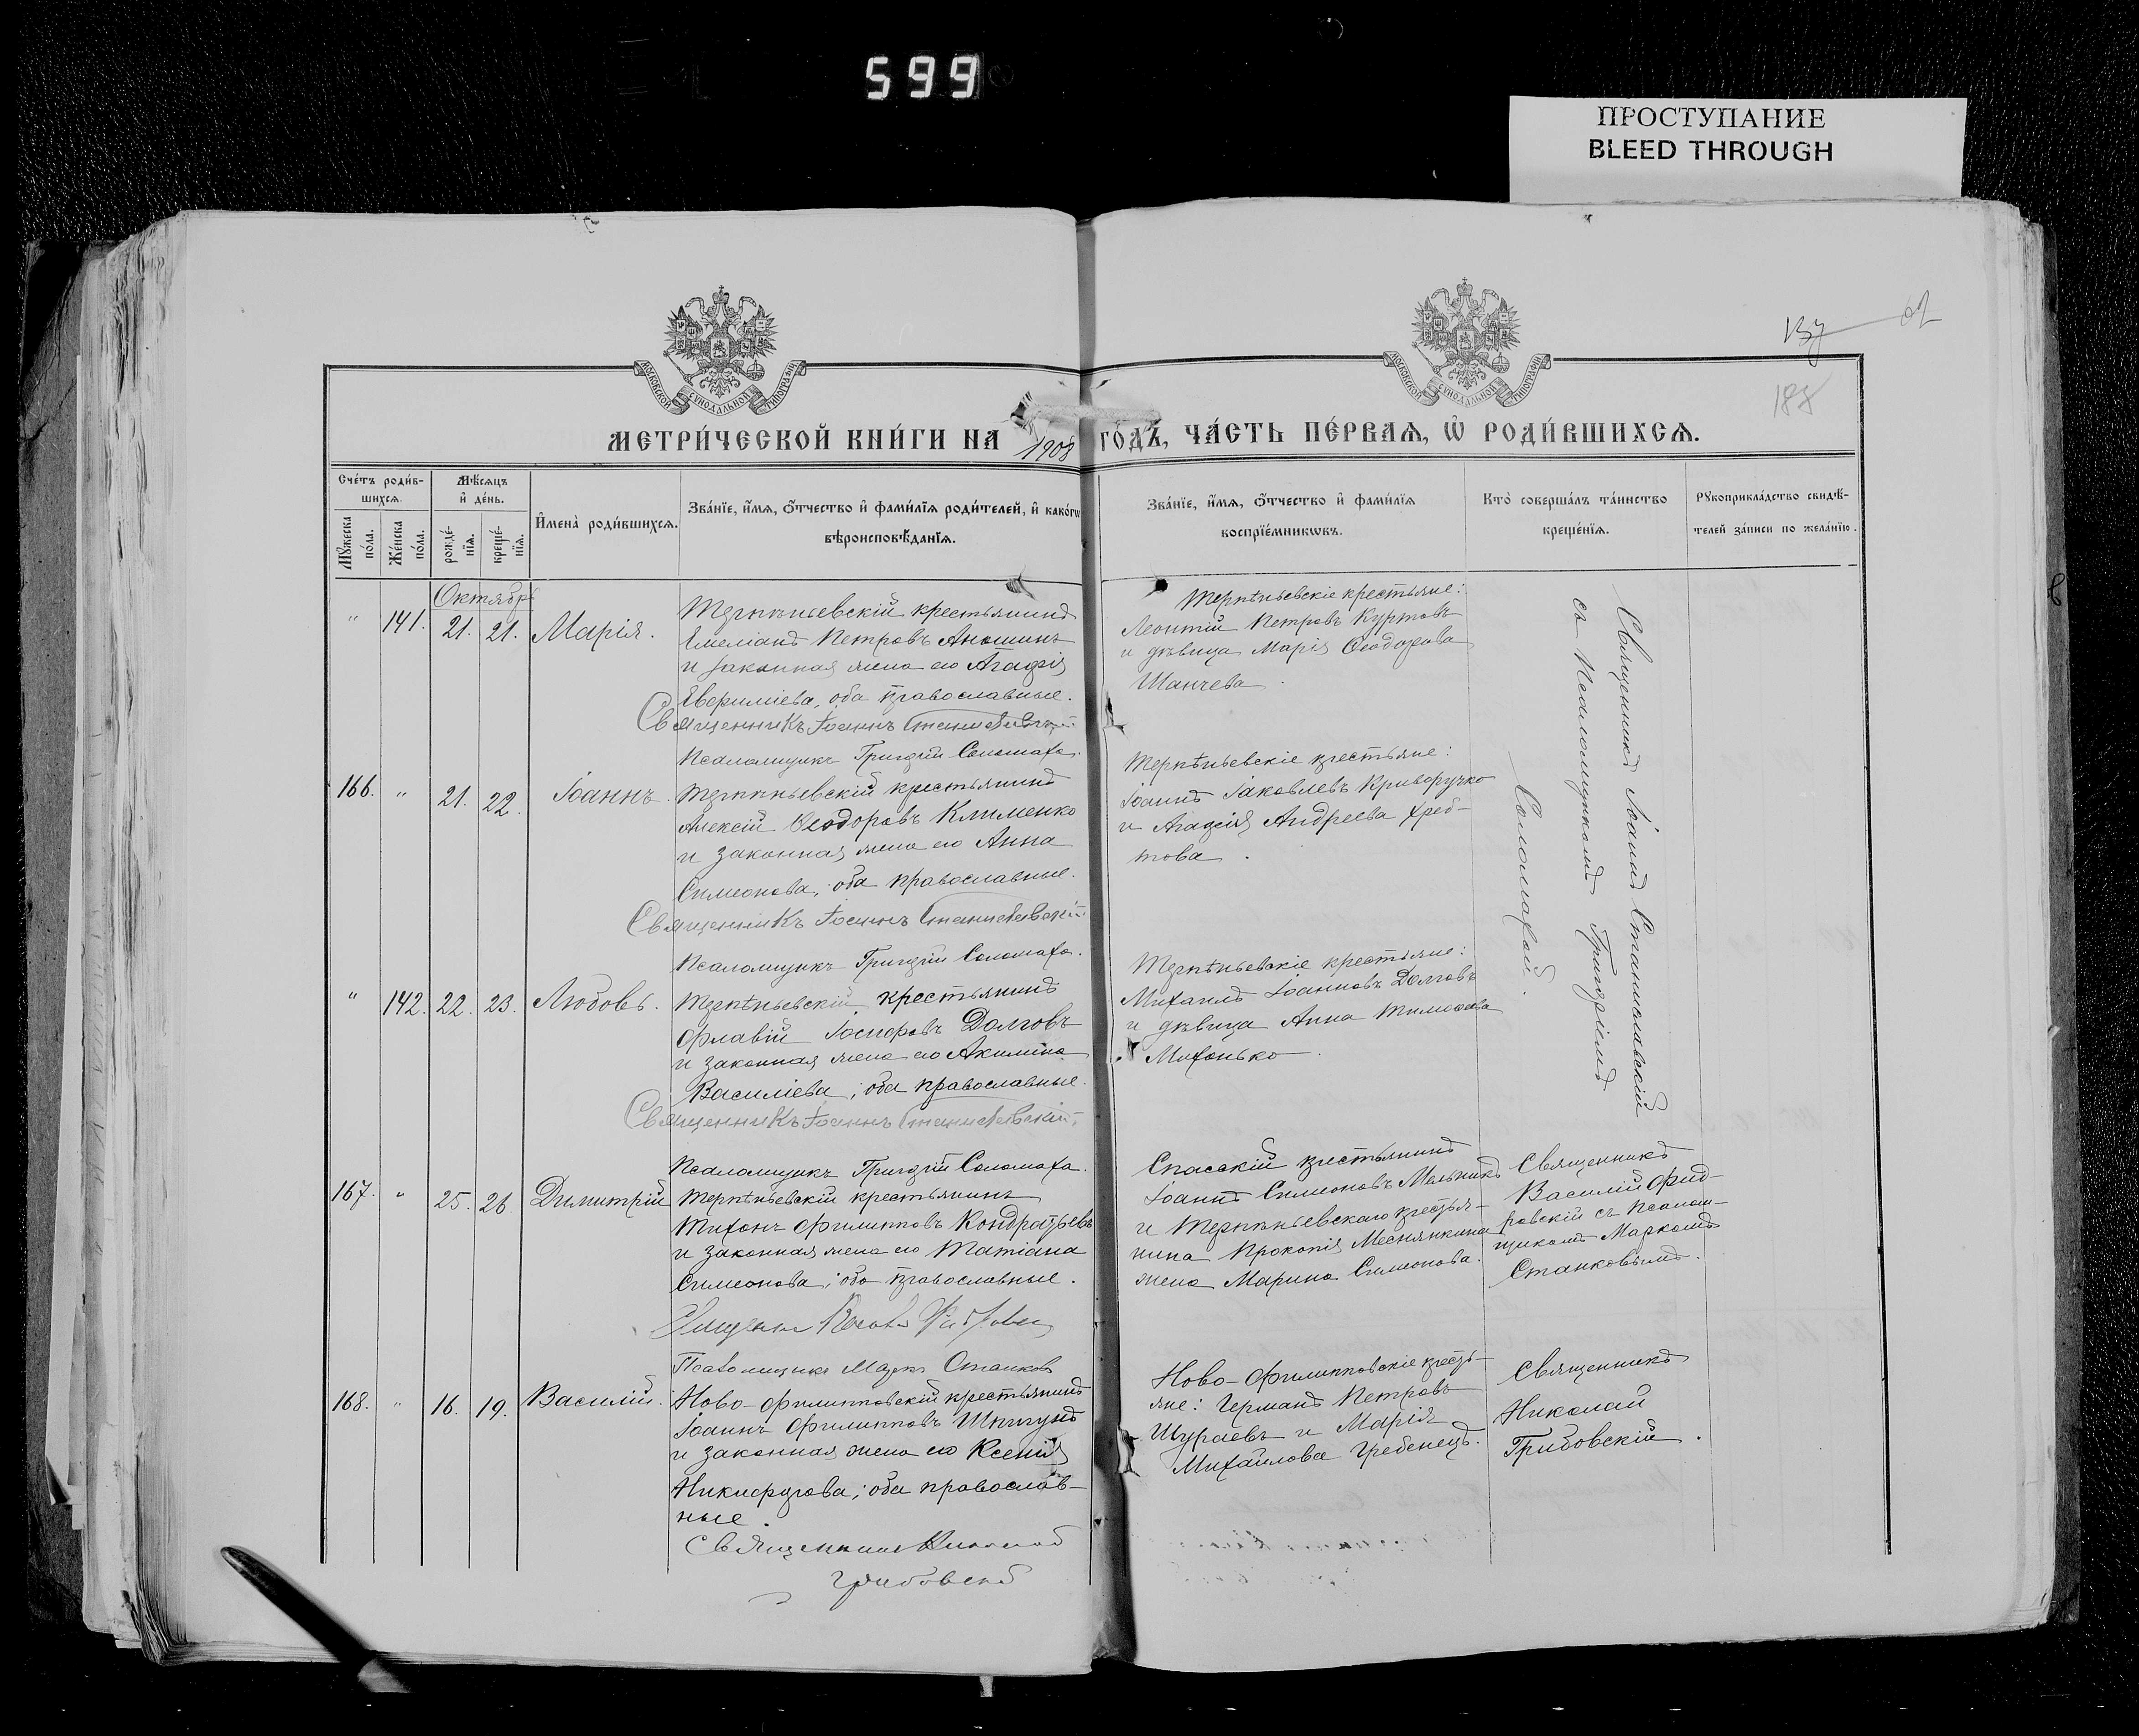 599
ПРОСТУПАНИЕ
BLEED THROUGH
137
188
МОСКОВСКОЙ СУНОДАЛЬНОЙ ТИПОГРАФИИ
МОСКОВСКОЙ СУНОДАЛЬНОЙ ТИПОГРАФИИ
МЕТРИ́ЧЕСКОЙ КНИ́ГИ НА 1908 ГО́ДЪ, ЧА́СТЬ ПЕ́РВАѦ, Ѡ РОДИ́ВШИХСѦ.
Сче́тъ роди́в-
шихсѧ.
Мꙋ́жеска по́ла.
Же́нска по́ла.
Мѣ́сѧцъ
и҆ де́нь.
рожде́-нїѧ.
креще́-нїѧ.
И҆мена̀ роди́вшихсѧ.
Зва́нїе, и҆́мѧ, ѻ҆́тчество и҆ фами́лїѧ роди́телей, и҆ како́гѡ
вѣроисповѣ́данїѧ.
Зва́нїе, и҆́мѧ, ѻ҆́тчество и҆ фами́лїѧ
воспрїе́мникѡвъ.
Кто̀ соверша́лъ та́инство
креще́нїѧ.
Рꙋкоприкла́дство свидѣ́-
телей за́писи по жела́нїю.
Октябрь
" 141. 21. 21. Марія.
Терпѣньевскій крестьянинъ
Емеліанъ Петровъ Аношинъ
и законная жена его Агафія
Евфиміева, оба православные.
Священникъ Іоаннъ Станиславскій
Псаломщикъ Григорій Соломаха.
Терпѣньевскіе крестьяне:
Леонтій Петровъ Куртовъ
и дѣвица Марія Ѳеодорова
Шанчева.
Священникъ Іоаннъ Станиславскій
съ Псаломщикомъ Григоріемъ
Соломахой.
166. " 21. 22. Іоаннъ.
Терпѣньевскій крестьянинъ
Алексій Ѳеодоровъ Клименко
и законная жена его Анна
Симеонова, оба православные.
Священникъ Іоаннъ Станиславскій
Псаломщикъ Григорій Соломаха.
Терпѣньевскіе крестьяне:
Іоаннъ Іаковлевъ Криворучко
и Агафія Андреева Хреб-
това.
" 142. 22. 23. Любовь.
Терпѣньевскій крестьянинъ
Флавій Іосифовъ Долговъ
и законная жена его Акилина
Василіева; оба православные.
Священникъ Іоаннъ Станиславскій
Псаломщикъ Григорій Соломаха.
Терпѣньевскіе крестьяне:
Михаилъ Іоанновъ Долговъ
и дѣвица Анна Тимоѳеева
Михонько.
167. " 25. 26. Димитрій
Терпѣньевскій крестьянинъ
Тихонъ Филипповъ Кондратьевъ
и законная жена его Татіана
Симеонова; оба православные.
Псаломщикъ Маркъ Станковъ
Спасскій крестьянинъ
Іоаннъ Симеоновъ Мельникъ
и Терпѣньевскаго крестья-
нина Прокопія Меснянкина
жена Марина Симеонова.
Священникъ
Василій Фид-
ровскій съ Псалом-
щикомъ Маркомъ
Станковымъ.
168. " 16. 19. Василій.
Ново-Филипповскій крестьянинъ
Іоаннъ Филипповъ Шпигунъ
и законная жена его Ксенія
Никифорова; оба православ-
ные.
Священникъ Николай
Грибовскій
Ново-Филипповскіе кресть-
яне: Германъ Петровъ
Шураевъ и Марія
Михайлова Гребенецъ.
Священникъ
Николай
Грибовскій.